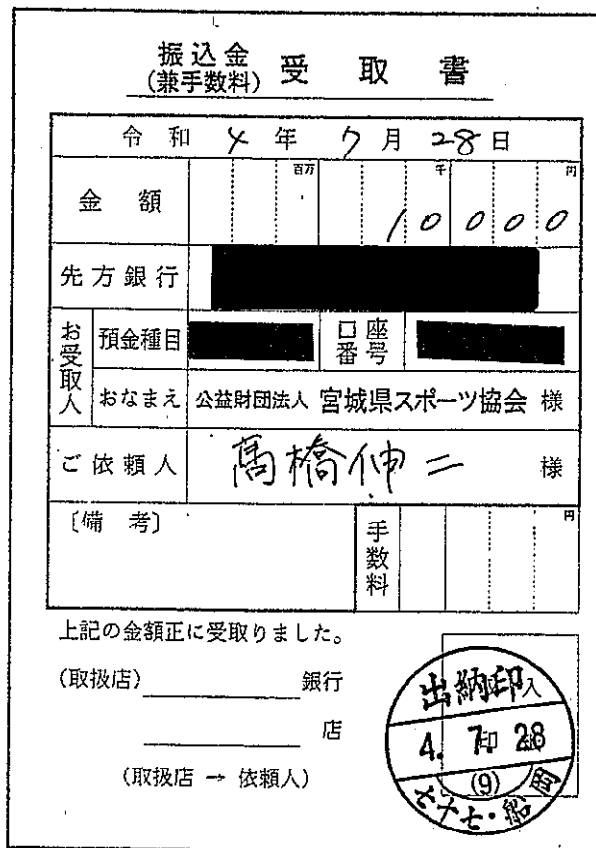 振込金
(兼手数料) 受 取 書
令 和 4 年 7 月 28 日
金 額 百万 千 円
10000
先方銀行
お受取人 預金種目 口座番号
おなまえ 公益財団法人 宮城県スポーツ協会 様
ご依頼人 髙橋伸二 様
〔備 考〕 手数料 円
上記の金額正に受取りました。
(取扱店) 銀行
店
(取扱店 → 依頼人)
出納印
4. 7 28
(9)
七十七・船岡